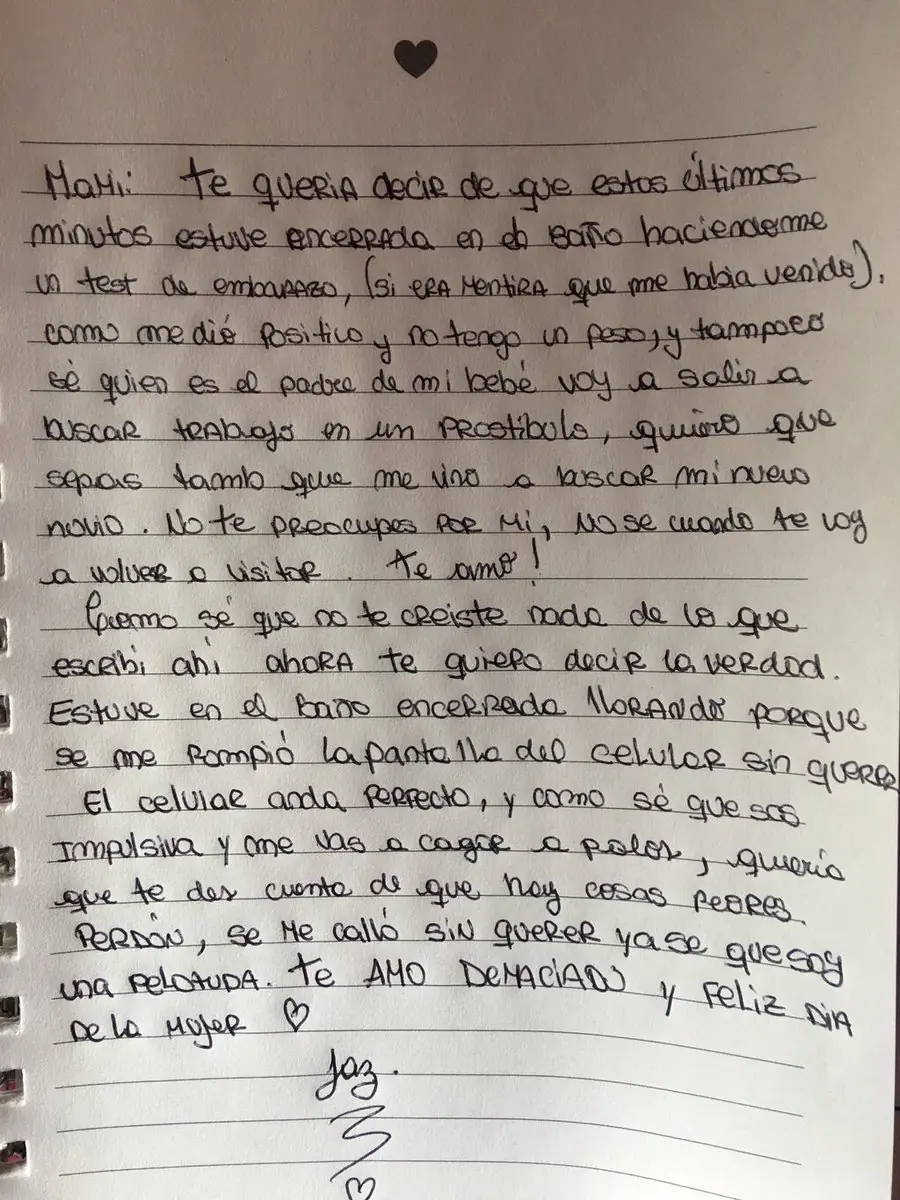 MaMi: te queria decir de que estos últimos
minutos estuve encerrada en el baño haciendome
un test de embarazo, (si era mentira que me habia venido).
como me dió positivo y no tengo un peso, y tampoco
sé quien es el padre de mi bebé voy a salir a
buscar trabajo en un prostibulo, quiero que
sepas tamb que me vino a buscar mi nuevo
novio. No te preocupes por mi, no se cuando te voy
a volver a visitar. te amo!
Como sé que no te creiste nada de lo que
escribi ahi ahora te quiero decir la verdad.
Estuve en el baño encerrada llorando porque
se me rompió la pantalla del celular sin querer
El celular anda perfecto, y como sé que sos
impulsiva y me vas a cagar a palos, queria
que te des cuenta de que hay cosas peores.
Perdón, se me calló sin querer ya se que soy
una pelotuda. te amo demaciado y feliz dia
De la mujer ♡
Jaz.